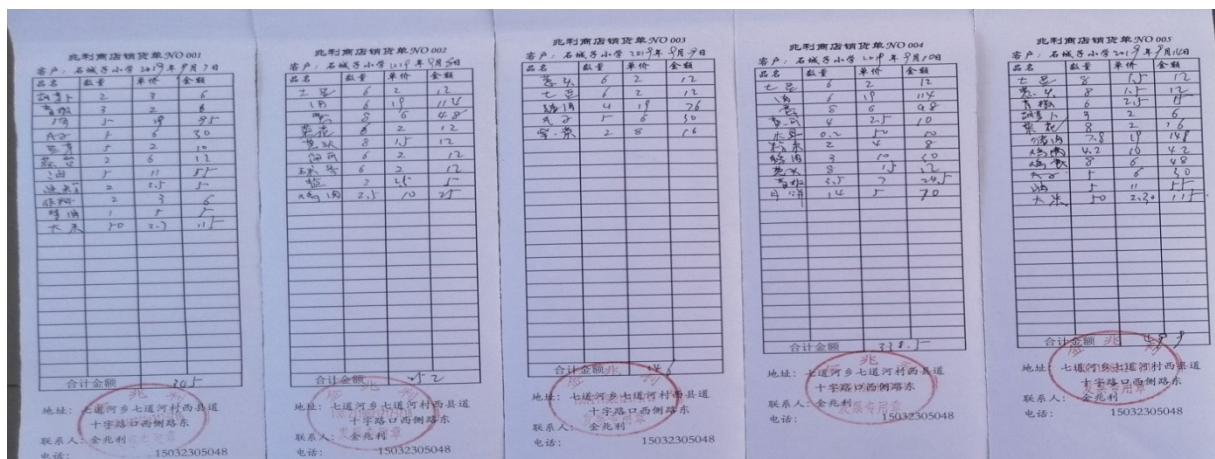 兆利商店销货单NO 001
客户：石城子小学 2019年9月7日
品名 数量 单价 金额
胡萝卜 2 3 6
青椒 3 2 6
肉 5 19 95
5 6 30
5 2 10
2 6 12
油 5 11 55
2 2.5 5
2 3 6
1 5 5
大米 50 2.3 115
合计金额
地址：七道河乡七道河村西县道
十字路口西侧路东
联系人：金兆利
电话：15032305048
兆利商店销货单NO 002
客户：石城子小学 2019年9月8日
品名 数量 单价 金额
土豆 6 2 12
肉 6 19 114
8 6 48
菜花 6 2 12
葱头 8 1.5 12
6 2 12
6 2 12
盐 2 2.5 5
鸡肉 2.5 10 25
合计金额 252
地址：七道河乡七道河村西县道
十字路口西侧路东
联系人：金兆利
电话：15032305048
兆利商店销货单NO 003
客户：石城子小学 2019年9月9日
品名 数量 单价 金额
葱头 6 2 12
土豆 6 2 12
猪肉 4 19 76
5 6 30
2 8 16
合计金额 146
地址：七道河乡七道河村西县道
十字路口西侧路东
联系人：金兆利
电话：15032305048
兆利商店销货单NO 004
客户：石城子小学 2019年9月10日
品名 数量 单价 金额
土豆 6 2 12
肉 6 19 114
8 6 98
4 2.5 10
木耳 0.2 50 10
2 4 8
3 10 30
葱头 8 1.5 12
青椒 3.5 7 24.5
月饼 14 5 70
合计金额 338.5
地址：七道河乡七道河村西县道
十字路口西侧路东
联系人：金兆利
电话：15032305048
兆利商店销货单NO 005
客户：石城子小学 2019年9月14日
品名 数量 单价 金额
土豆 8 1.5 12
葱头 8 1.5 12
青椒 6 2.5 15
胡萝卜 3 2 6
菜花 8 2 16
猪肉 7.8 19 148
鸡肉 4.2 10 42
8 6 48
5 6 30
油 5 11 55
大米 50 2.30 115
合计金额 499
地址：七道河乡七道河村西县道
十字路口西侧路东
联系人：金兆利
电话：15032305048